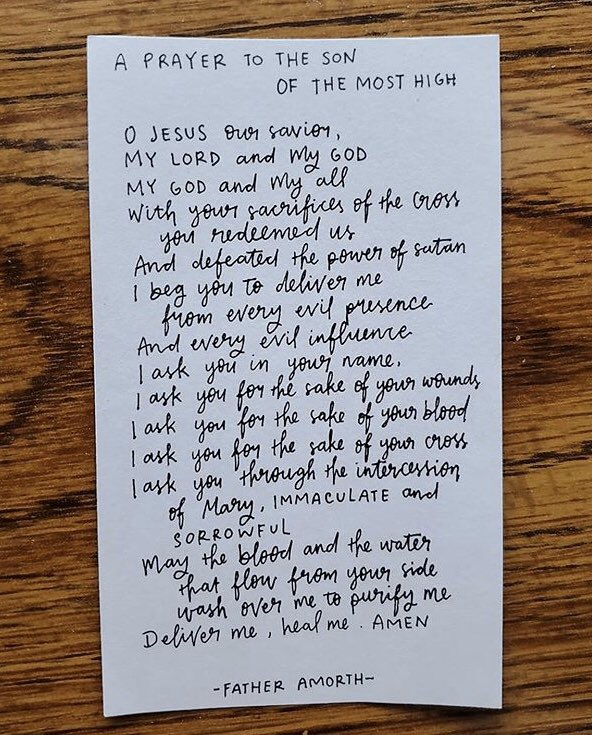 A PRAYER TO THE SON
OF THE MOST HIGH
O JESUS our savior,
MY LORD and My GOD
MY GOD and My all
With your sacrifices of the Cross
you redeemed us
And defeated the power of satan
I beg you to deliver me
from every evil presence
And every evil influence
I ask you in your name,
I ask you for the sake of your wounds
I ask you for the sake of your blood
I ask you for the sake of your cross
I ask you through the intercession
of Mary, IMMACULATE and
SORROWFUL
May the blood and the water
that flow from your side
wash over me to purify me
Deliver me, heal me. AMEN
-FATHER AMORTH-